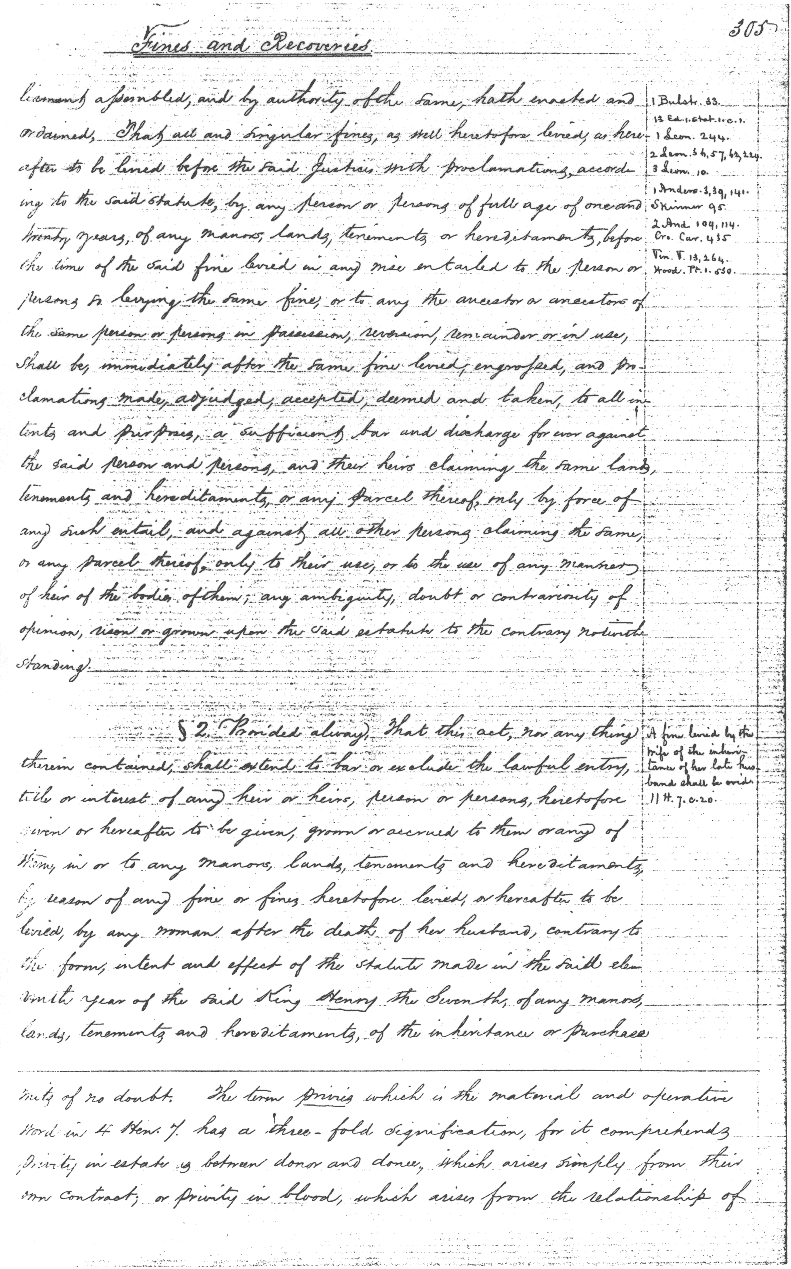 305
Fines and Recoveries
liament assembled, and by authority of the same, hath enacted and
ordained, That all and singular fines, as well heretofore levied, as here-
after to be levied before the said Justices with proclamations, accord
ing to the said statute, by any person or persons of full age of one and
twenty years, of any manors, lands, tenements or hereditaments, before
the time of the said fine levied in any wise entailed to the person or
persons so levying the same fine, or to any the ancestor or ancestors of
the same person or persons in possession, reversion, remainder or in use,
shall be, immediately after the same fine levied, engrossed, and pro-
clamations made, adjudged, accepted, deemed and taken, to all in-
tents and purposes, a sufficient bar and discharge for ever against
the said person and persons, and their heirs claiming the same lands,
tenements and hereditaments, or any parcel thereof, only by force of
any such entail, and against all other persons claiming the same,
or any parcel thereof, only to their use, or to the use of any manner
of heir of the bodies of them; any ambiguity, doubt or contrariosity of
opinion, risen or grown upon the said estatute to the contrary notwith
standing.
1 Bulstr. 33.
13 Ed. 1. stat. 1. c. 1.
1 Leon. 244.
2 Leon. 36, 57, 62, 224.
3 Leon. 10.
1 Anders. 3, 39, 141.
Skinner 95.
2 And 109, 114.
Cro. Car. 435
Vin. V. 13, 264.
Wood. Pt. 1. 530.
§ 2. Provided alway, That this act, nor any thing
therein contained, shall extend to bar or exclude the lawful entry,
title or interest of any heir or heirs, person or persons, heretofore
given or hereafter to be given, grown or accrued to them or any of
them, in or to any manors, lands, tenements and hereditaments,
by reason of any fine or fines heretofore levied, or hereafter to be
levied, by any woman after the death of her husband, contrary to
the form, intent and effect of the statute made in the said ele-
venth year of the said King Henry the Seventh, of any manors,
lands, tenements and hereditaments, of the inheritance or purchase
A fine levied by the
wife of the inheri-
tance of her late hus
band shall be void.
11 H. 7. c. 20.
mits of no doubt. The term privies which is the material and operative
word in 4 Hen. 7. has a three-fold signification, for it comprehends
privity in estate as between donor and donee, which arises simply from their
own contract, or privity in blood, which arises from the relationship of